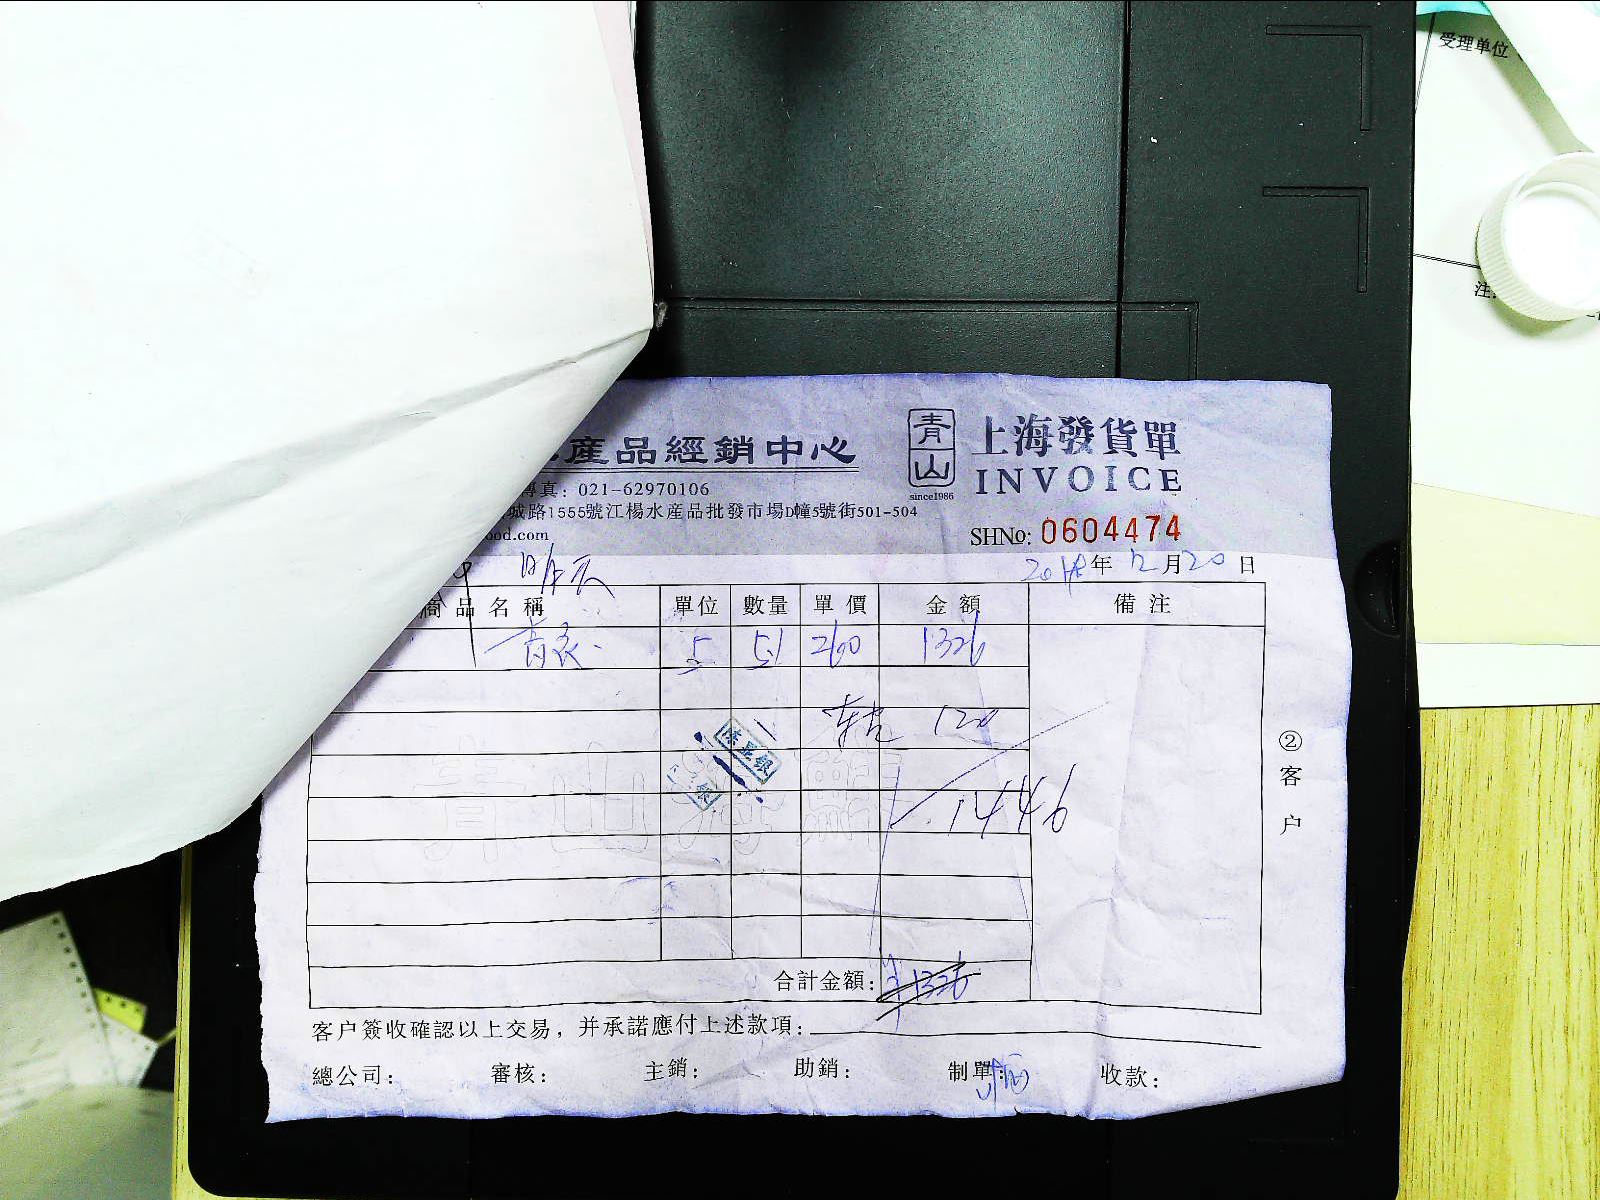 受理单位
注
產品經銷中心
青山
since1986
上海發货單
INVOICE
傳真：021-62970106
城路1555號江楊水産品批發市場D幢5號街501-504
ood.com
SHNo: 0604474
2018年12月20日
商品名稱 單位 數量 單價 金額 備注
5 51 260 1326
120
1446
青山
②客户
合計金額：1326
客户簽收確認以上交易，并承諾應付上述款項：
總公司： 審核： 主銷： 助銷： 制單： 收款：